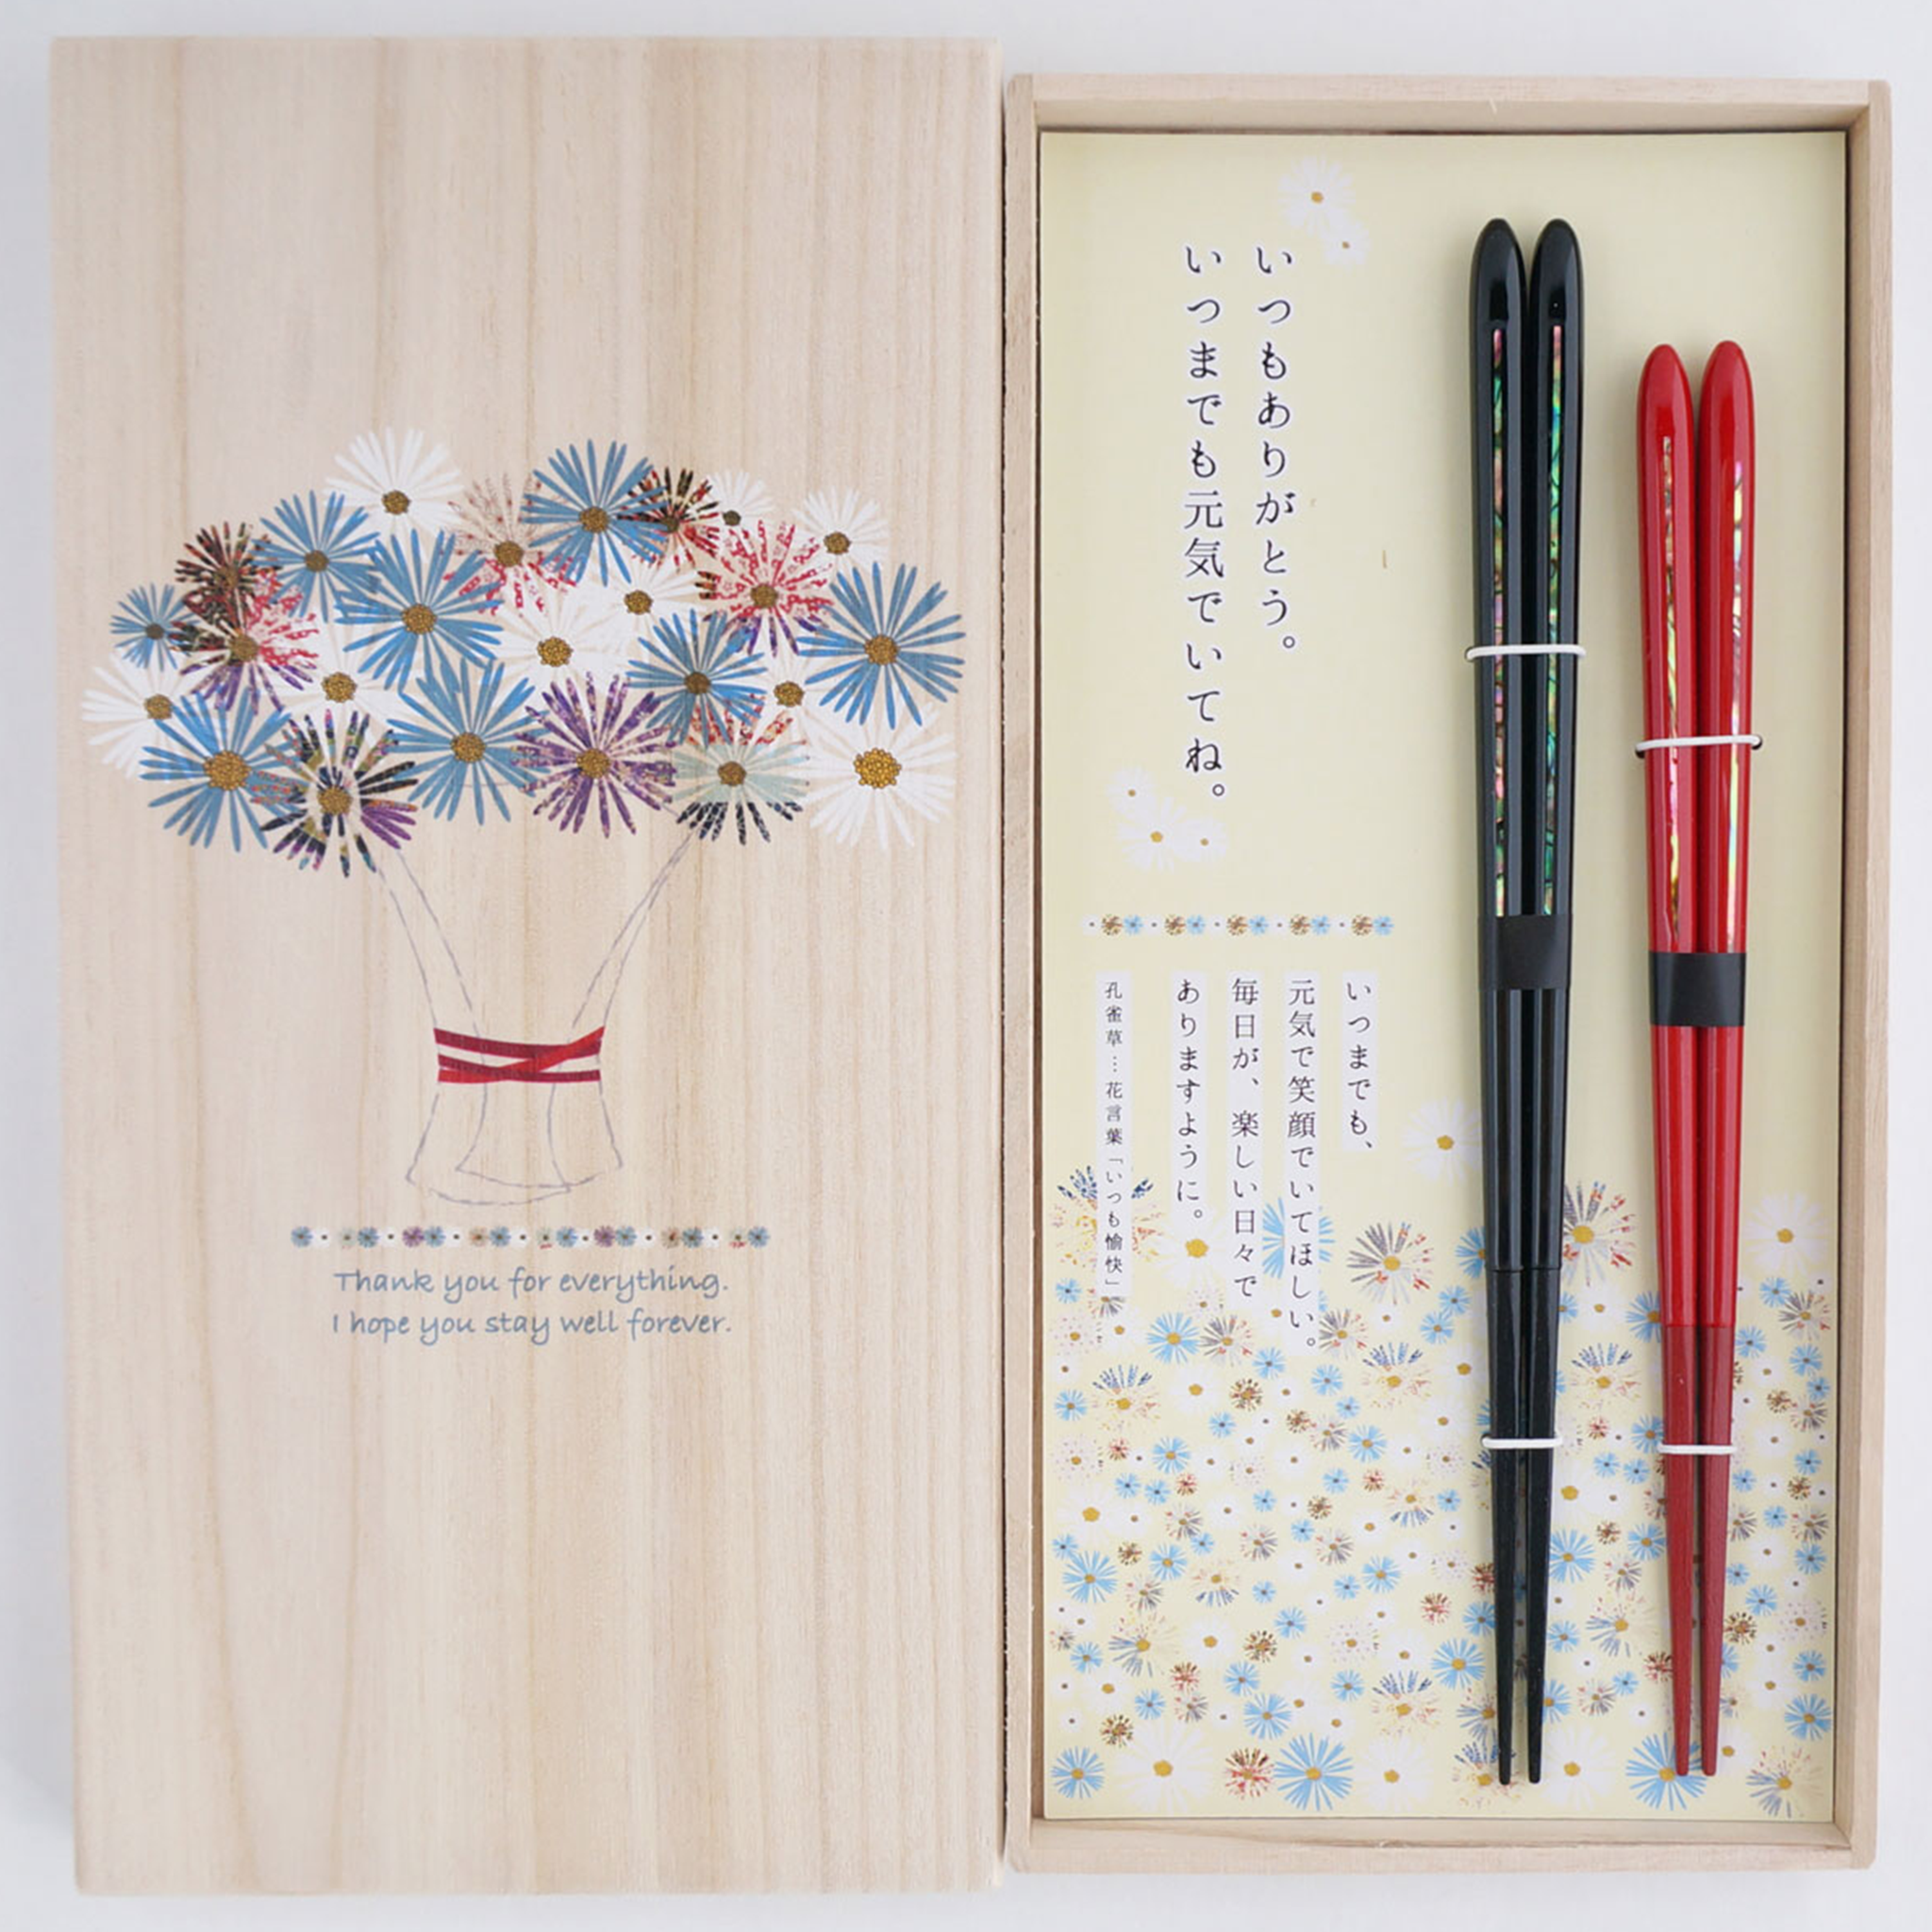 Thank you for everything.
I hope you stay well forever.
いつもありがとう。
いつまでも元気でいてね。
いつまでも、
元気で笑顔でいてほしい。
毎日が、楽しい日々で
ありますように。
孔雀草…花言葉「いつも愉快」